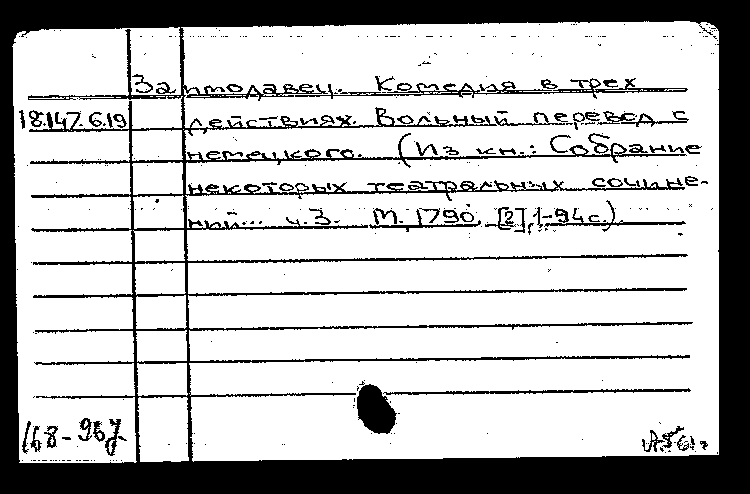 Заимодавец. Комедия в трех
18.147.6.19 действиях. Вольный перевод с
немецкого. (Из кн.: Собрание
некоторых театральных сочине-
ний... ч.3. М., 1790, [2], 1-94 с.).
168-967